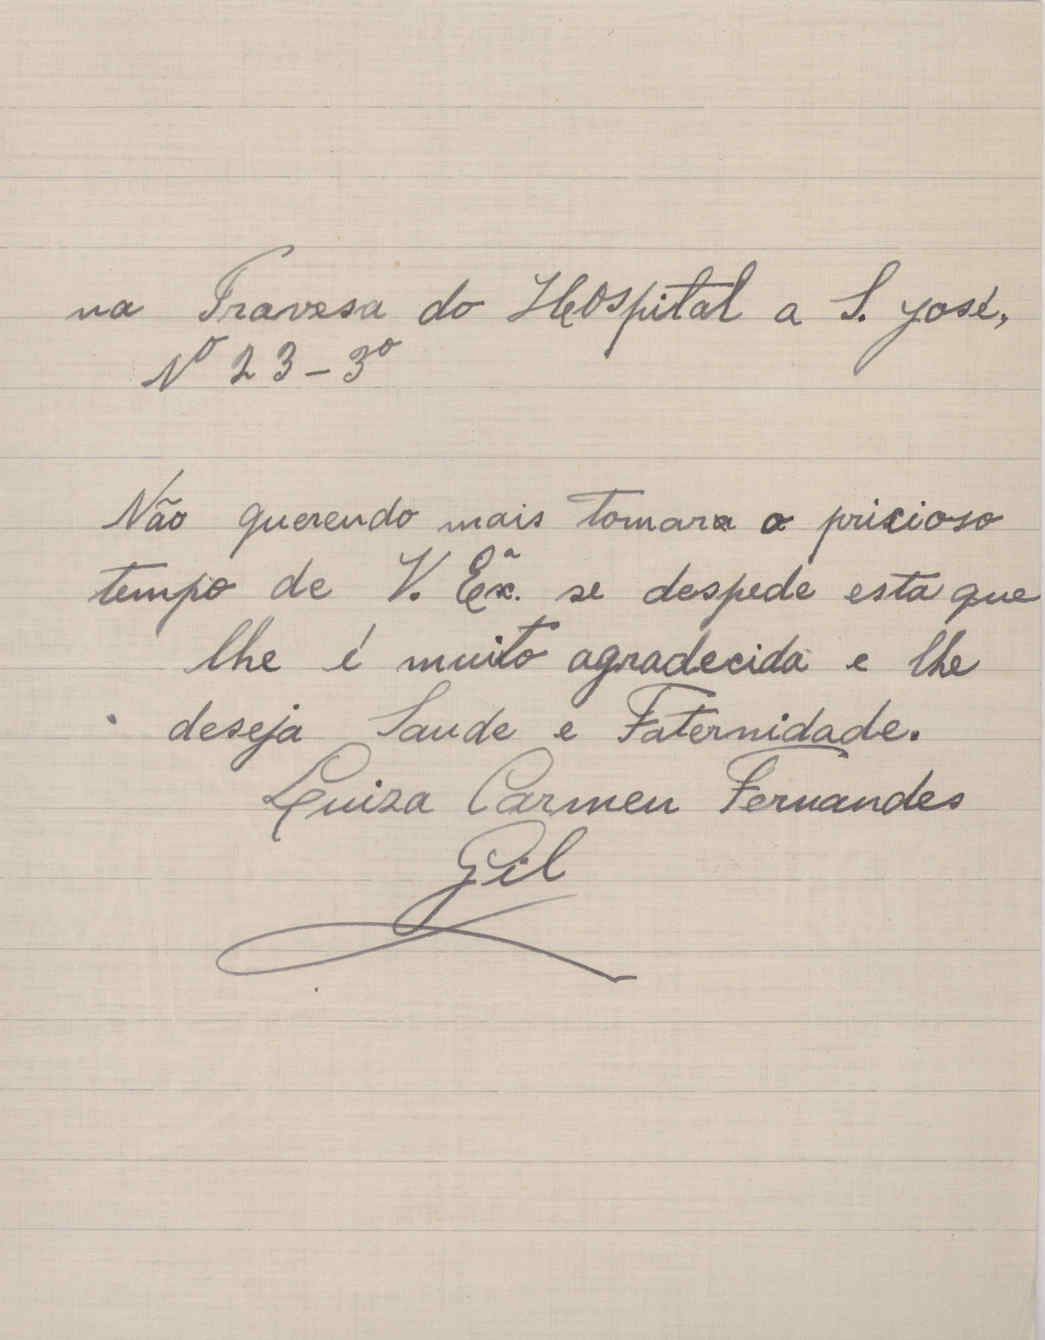 na Travesa do Hospital a S. José,
Nº 23-3º
Não querendo mais tomara o pricioso
tempo de V. Exª. se despede esta que
lhe é muito agradecida e lhe
deseja Saude e Faternidade.
Luiza Carmen Fernandes
Gil